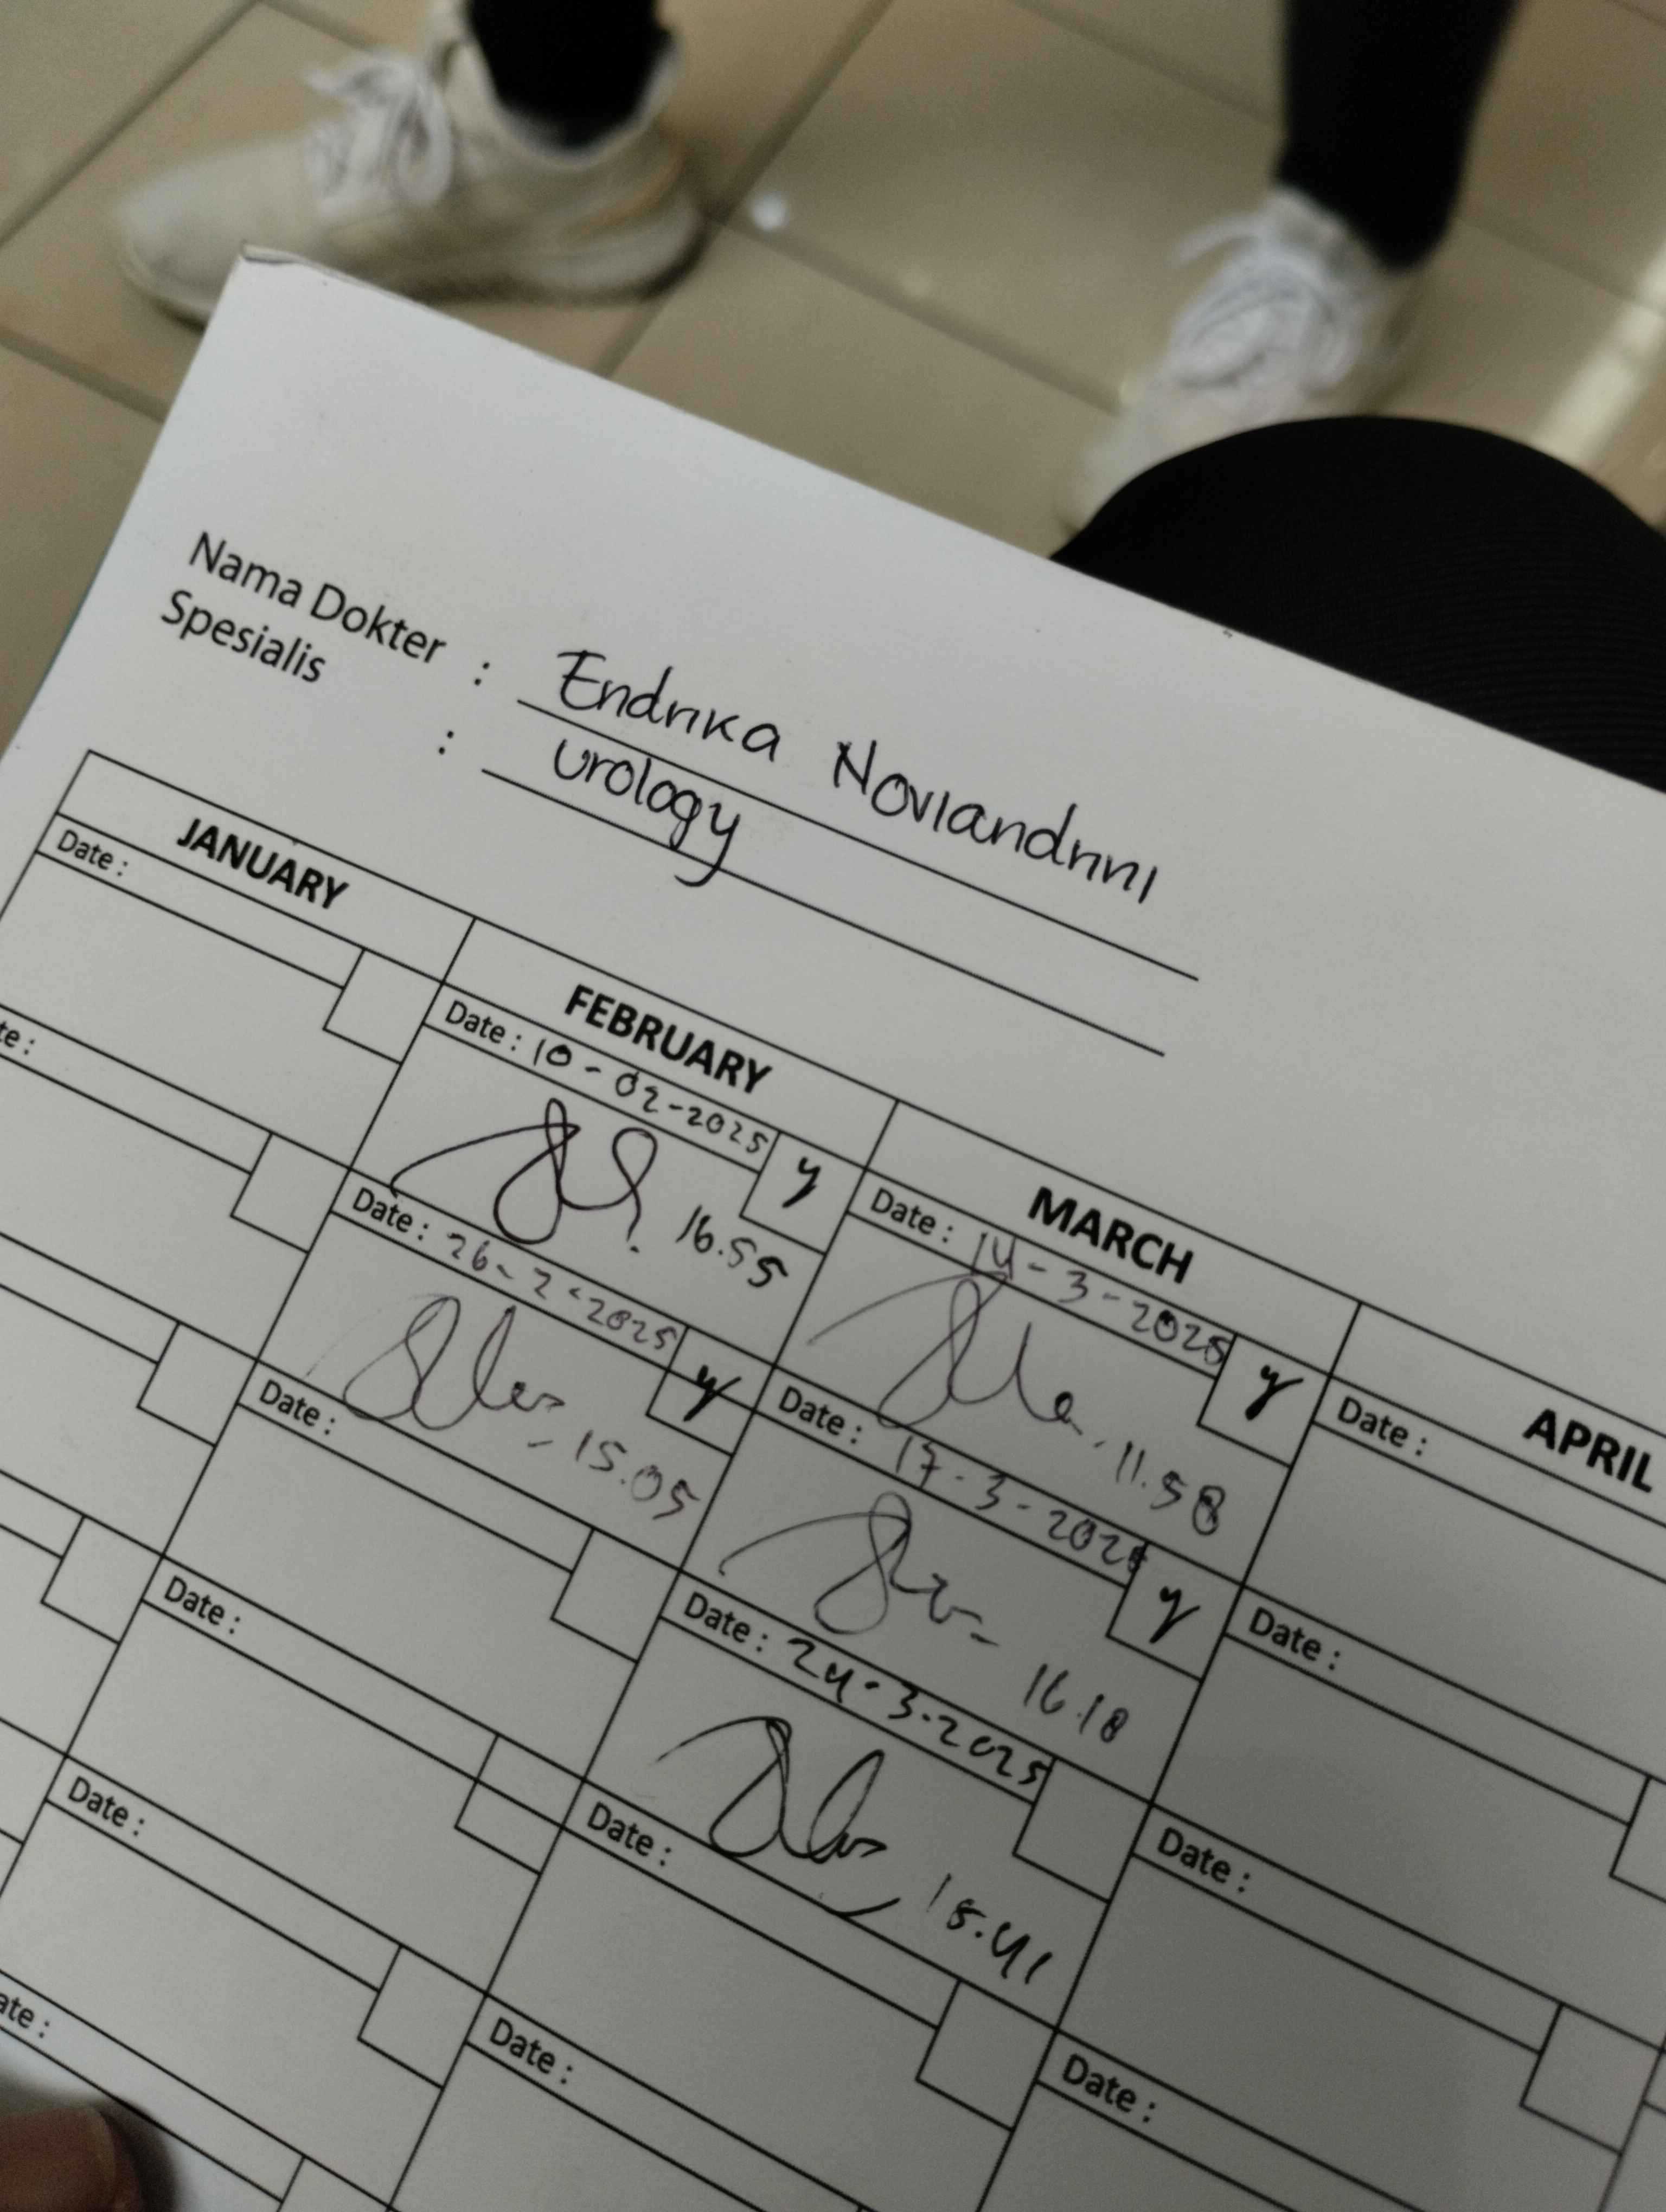 Nama Dokter : Endrika Noviandrini
Spesialis : Urology
JANUARY FEBRUARY MARCH APRIL
Date :
Date : 10-02-2025 y
16.55
Date : 14-3-2025 y
11.58
Date :
te :
Date : 26-2-2025 y
15.05
Date : 17-3-2025 y
16.18
Date :
Date :
Date : 24-3-2025
Date :
Date :
Date :
Date :
Date :
Date :
ate :